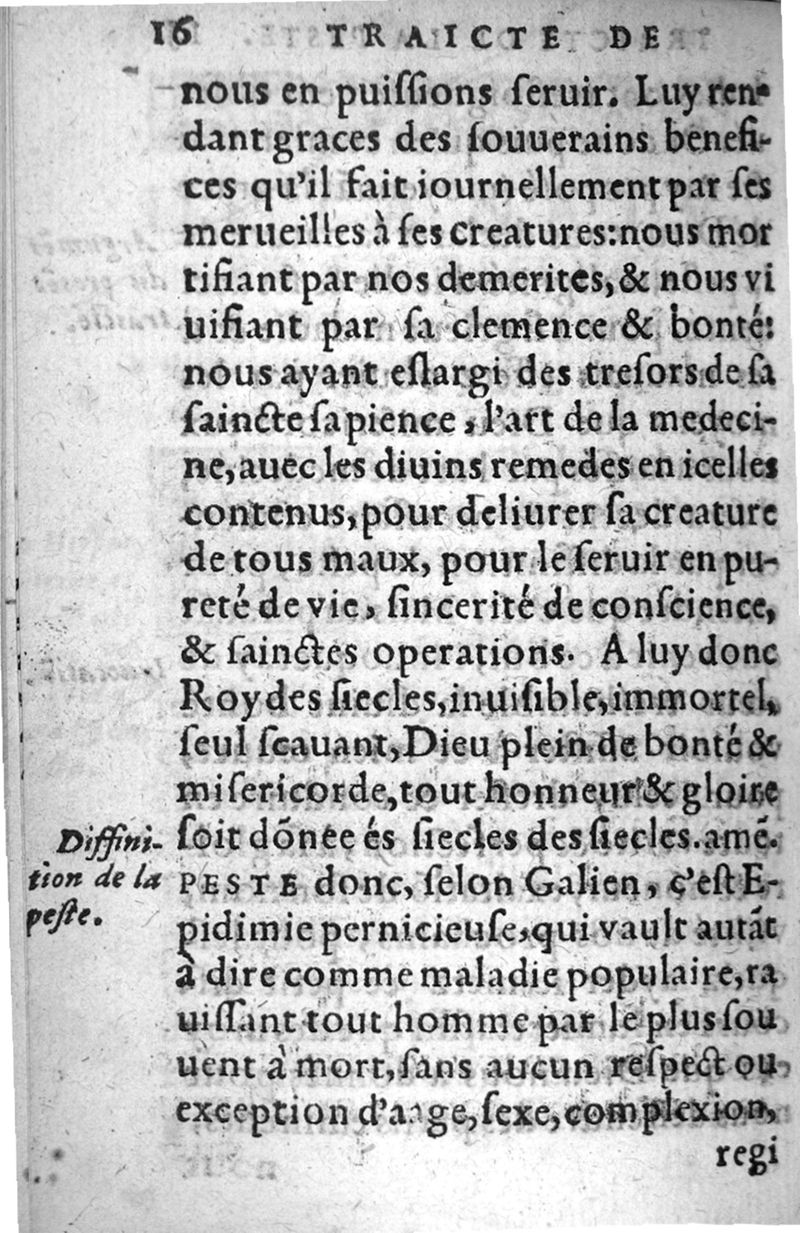 16 TRAICTE DE
nous en puiſſions ſeruir. Luy ren-
dant graces des ſouuerains benefi-
ces qu'il fait iournellement par ſes
merueilles à ſes creatures: nous mor
tifiant par nos demerites, & nous vi
uifiant par ſa clemence & bonté:
nous ayant eſlargi des treſors de ſa
ſaincte ſapience, l'art de la medeci-
ne, auec les diuins remedes en icelles
contenus, pour deliurer ſa creature
de tous maux, pour le ſeruir en pu-
reté de vie, ſincerité de conſcience,
& ſainctes operations. A luy donc
Roy des ſiecles, inuiſible, immortel,
ſeul ſcauant, Dieu plein de bonté &
miſericorde, tout honneur & gloire
ſoit dõnee és ſiecles des ſiecles. amẽ.
Diffini-
tion de la
peſte.
PESTE donc, ſelon Galien, c'eſt E-
pidimie pernicieuſe, qui vault autãt
à dire comme maladie populaire, ra
uiſſant tout homme par le plus ſou
uent à mort, ſans aucun reſpect ou
exception d'aage, ſexe, complexion,
regi